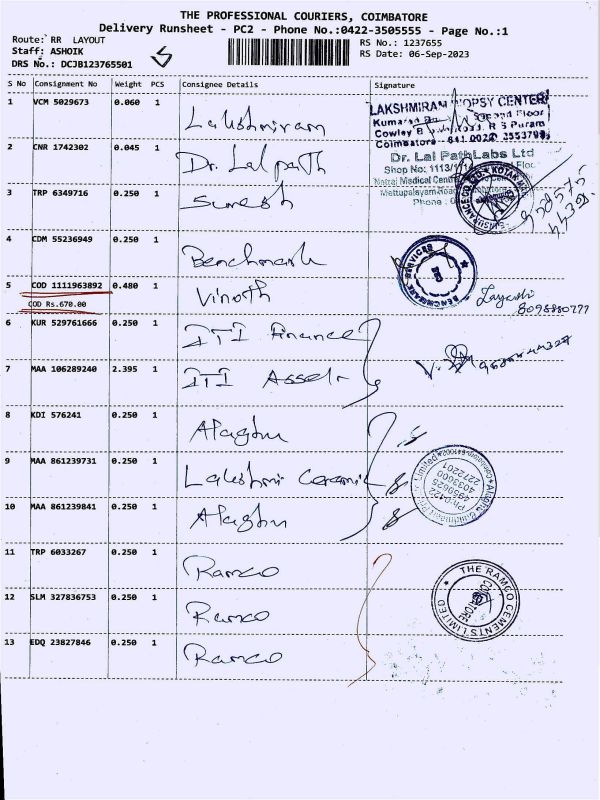 THE PROFESSIONAL COURIERS, COIMBATORE
Delivery Runsheet - PC2 - Phone No.:0422-3505555 - Page No.:1
Route: RR LAYOUT
RS No.: 1237655
Staff: ASHOIK
RS Date: 06-Sep-2023
DRS No.: DCJB123765501
S No Consignment No Weight PCS Consignee Details Signature
1 VCM 5029673 0.060 1 Lakshmiram
LAKSHMIRAM BIOPSY CENTER
Floor
Cowley B R S Puram
Coimbatore
2 CNR 1742302 0.045 1 Dr. Lal path
Dr. Lal PathLabs Ltd
Shop No: 1113/
Medical Centre
Mettupalayam Road
Phone
3 TRP 6349716 0.250 1 Suresh
4 CDM 55236949 0.250 1 Benchmark
BENCHMARK SERVICES
5 COD 1111963892 0.480 1 Vinoth
COD Rs.670.00
6 KUR 529761666 0.250 1 ITI Finance
7 MAA 106289240 2.395 1 ITI Asset
8 KDI 576241 0.250 1 Alaghu
9 MAA 861239731 0.250 1 Lakshmi Ceramic
10 MAA 861239841 0.250 1 Alaghu
11 TRP 6033267 0.250 1 Ramco
THE RAMCO CEMENTS LIMITED
12 SLM 327836753 0.250 1 Ramco
13 EDQ 23827846 0.250 1 Ramco